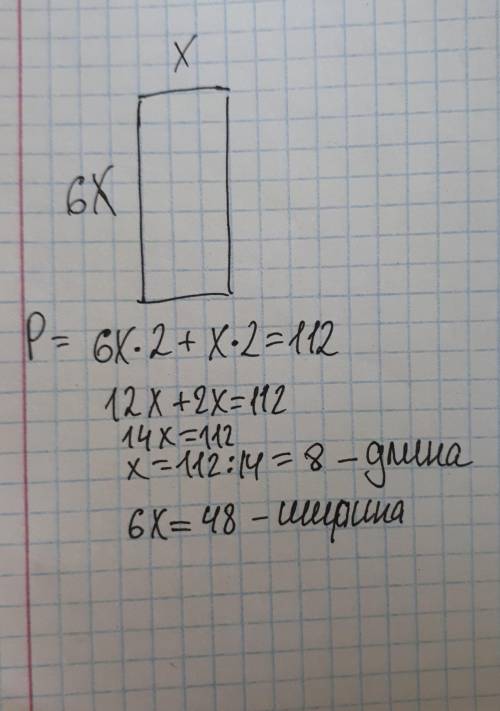 X
6X
P = 6X·2 + X·2 = 112
12X + 2X = 112
14X = 112
X = 112 : 14 = 8 – длина
6X = 48 – ширина